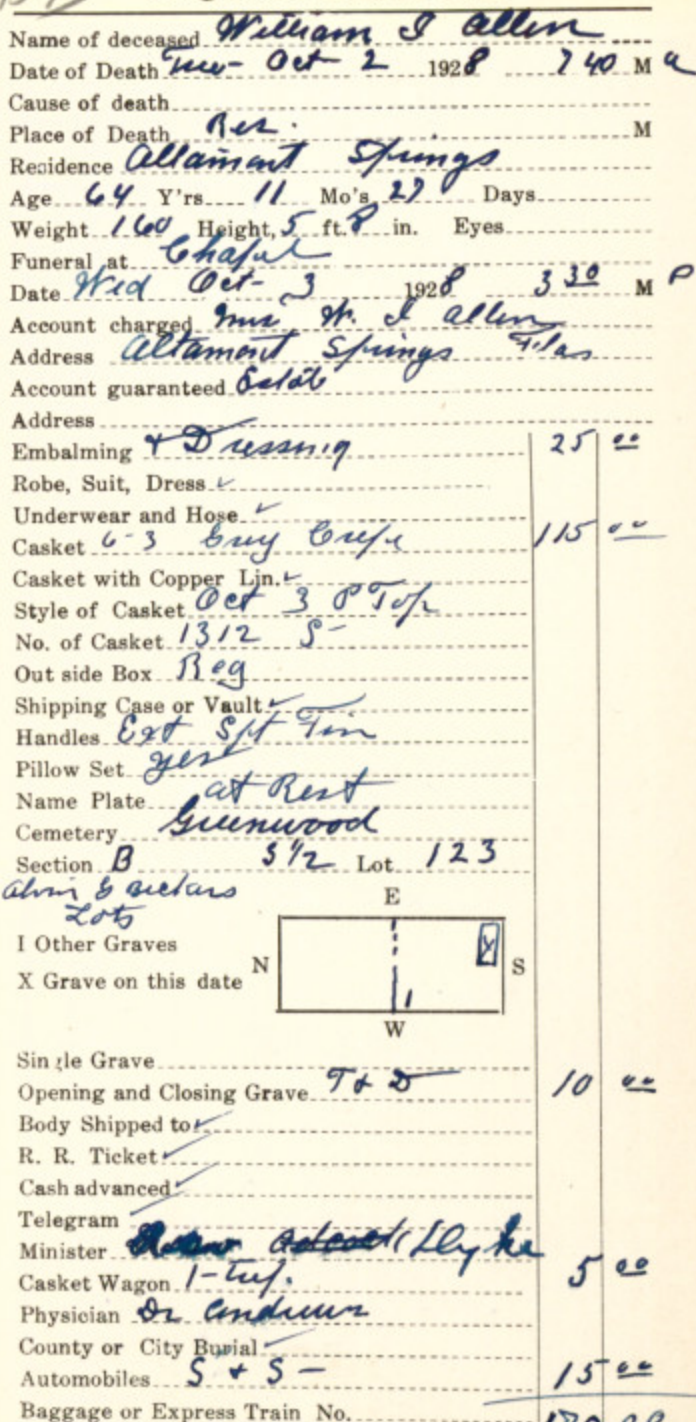 Name of deceased William I Allen
Date of Death Tue- Oct- 2 1928 7 40 M a
Cause of death
Place of Death Res. M
Residence Altamont Springs
Age 64 Y'rs 11 Mo's 27 Days
Weight 160 Height, 5 ft. 8 in. Eyes
Funeral at Chapel
Date Wed Oct- 3 1928 3 30 M P
Account charged Mrs W. I Allen
Address Altamont Springs Fla
Account guaranteed Estate
Address
Embalming & Dressing 25 00
Robe, Suit, Dress
Underwear and Hose
Casket 6-3 Grey Crepe 115 00
Casket with Copper Lin.
Style of Casket Oct 3 P Top
No. of Casket 1312 S-
Out side Box Reg
Shipping Case or Vault
Handles Ext Tin
Pillow Set yes
Name Plate at Rest
Cemetery Greenwood
Section B S 1/2 Lot 123
Lots
E
I Other Graves
N S
X Grave on this date
W
Single Grave
Opening and Closing Grave T & D 10 00
Body Shipped to
R. R. Ticket
Cash advanced
Telegram
Minister 5 00
Casket Wagon 1-
Physician Dr Andrews
County or City Burial
Automobiles S & S - 15 00
Baggage or Express Train No.